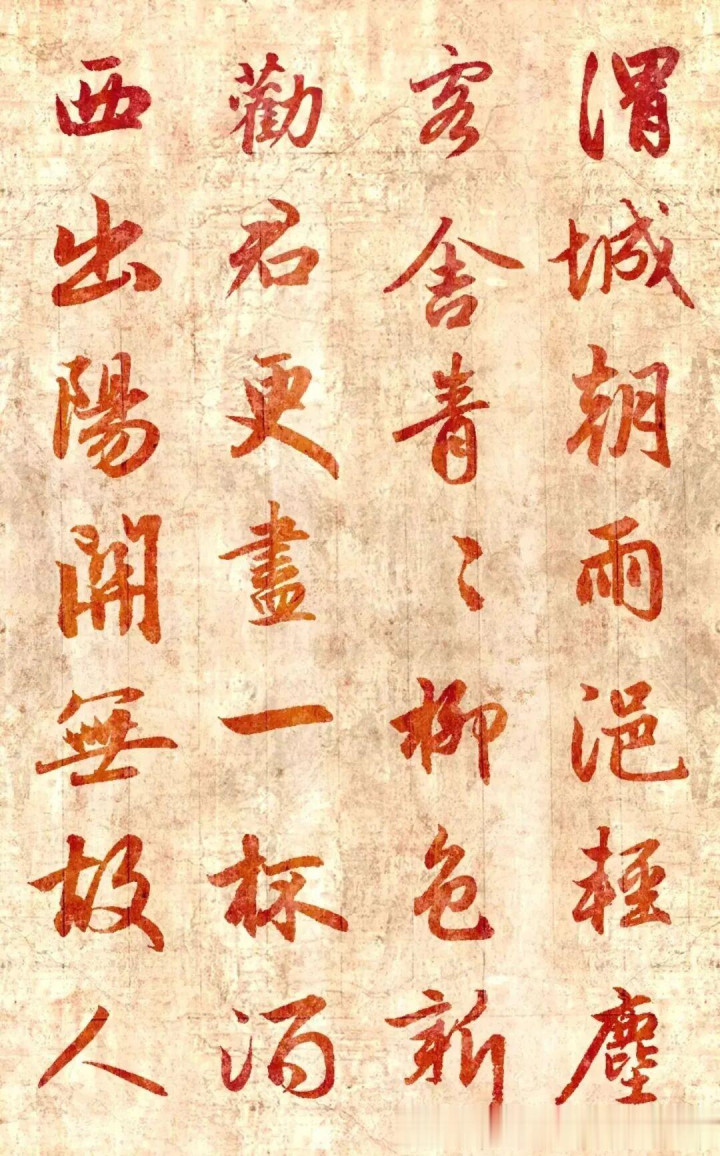 渭城朝雨浥輕塵
客舍青〻柳色新
勸君更盡一杯酒
西出陽關無故人